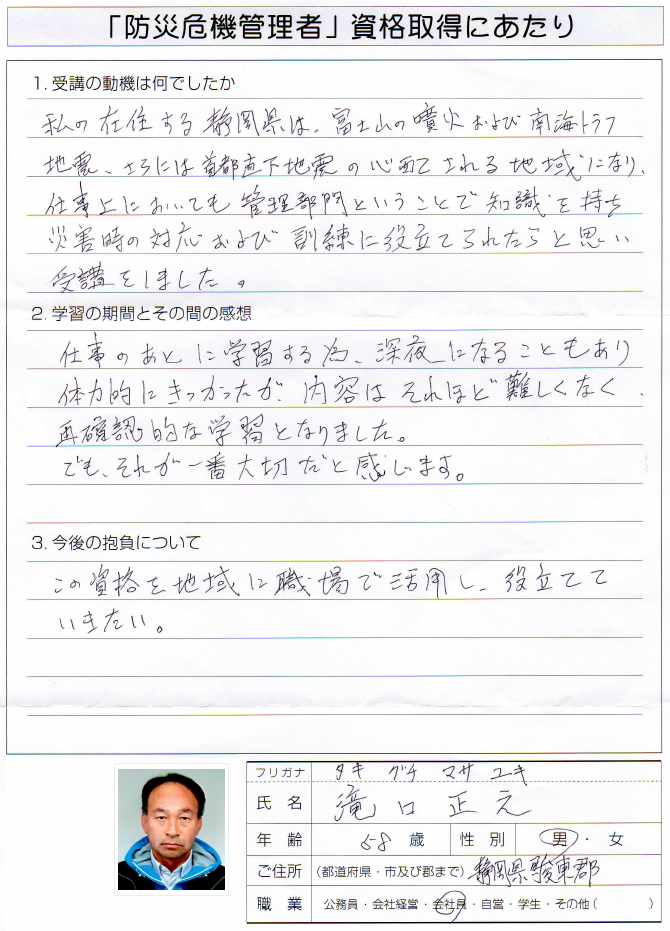 「防災危機管理者」資格取得にあたり
1. 受講の動機は何でしたか
私の在住する静岡県は、富士山の噴火および南海トラフ
地震、さらには首都直下地震の心配される地域になり、
仕事上においても管理部門ということで知識を持ち
災害時の対応および訓練に役立てられたらと思い
受講をしました。
2. 学習の期間とその間の感想
仕事のあとに学習する為、深夜になることもあり
体力的にきつかったが、内容はそれほど難しくなく、
再確認的な学習となりました。
でも、それが一番大切だと感じます。
3. 今後の抱負について
この資格を地域に職場で活用し、役立てて
いきたい。
フリガナ タキ グチ マサ ユキ
氏 名 滝口 正之
年 齢 58 歳 性 別 男・女
ご住所 (都道府県・市及び郡まで) 静岡県駿東郡
職 業 公務員・会社経営・会社員・自営・学生・その他( )